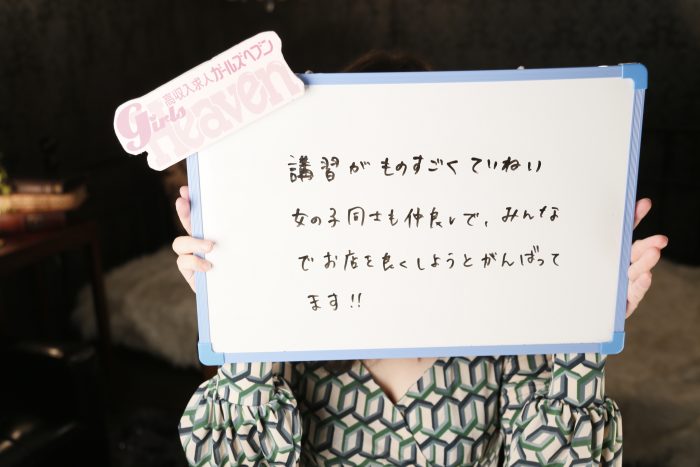 高収入求人ガールズヘブン
Girls
Heaven
講習がものすごくていねい
女の子同士も仲良しで、みんな
でお店を良くしようとがんばって
ます!!